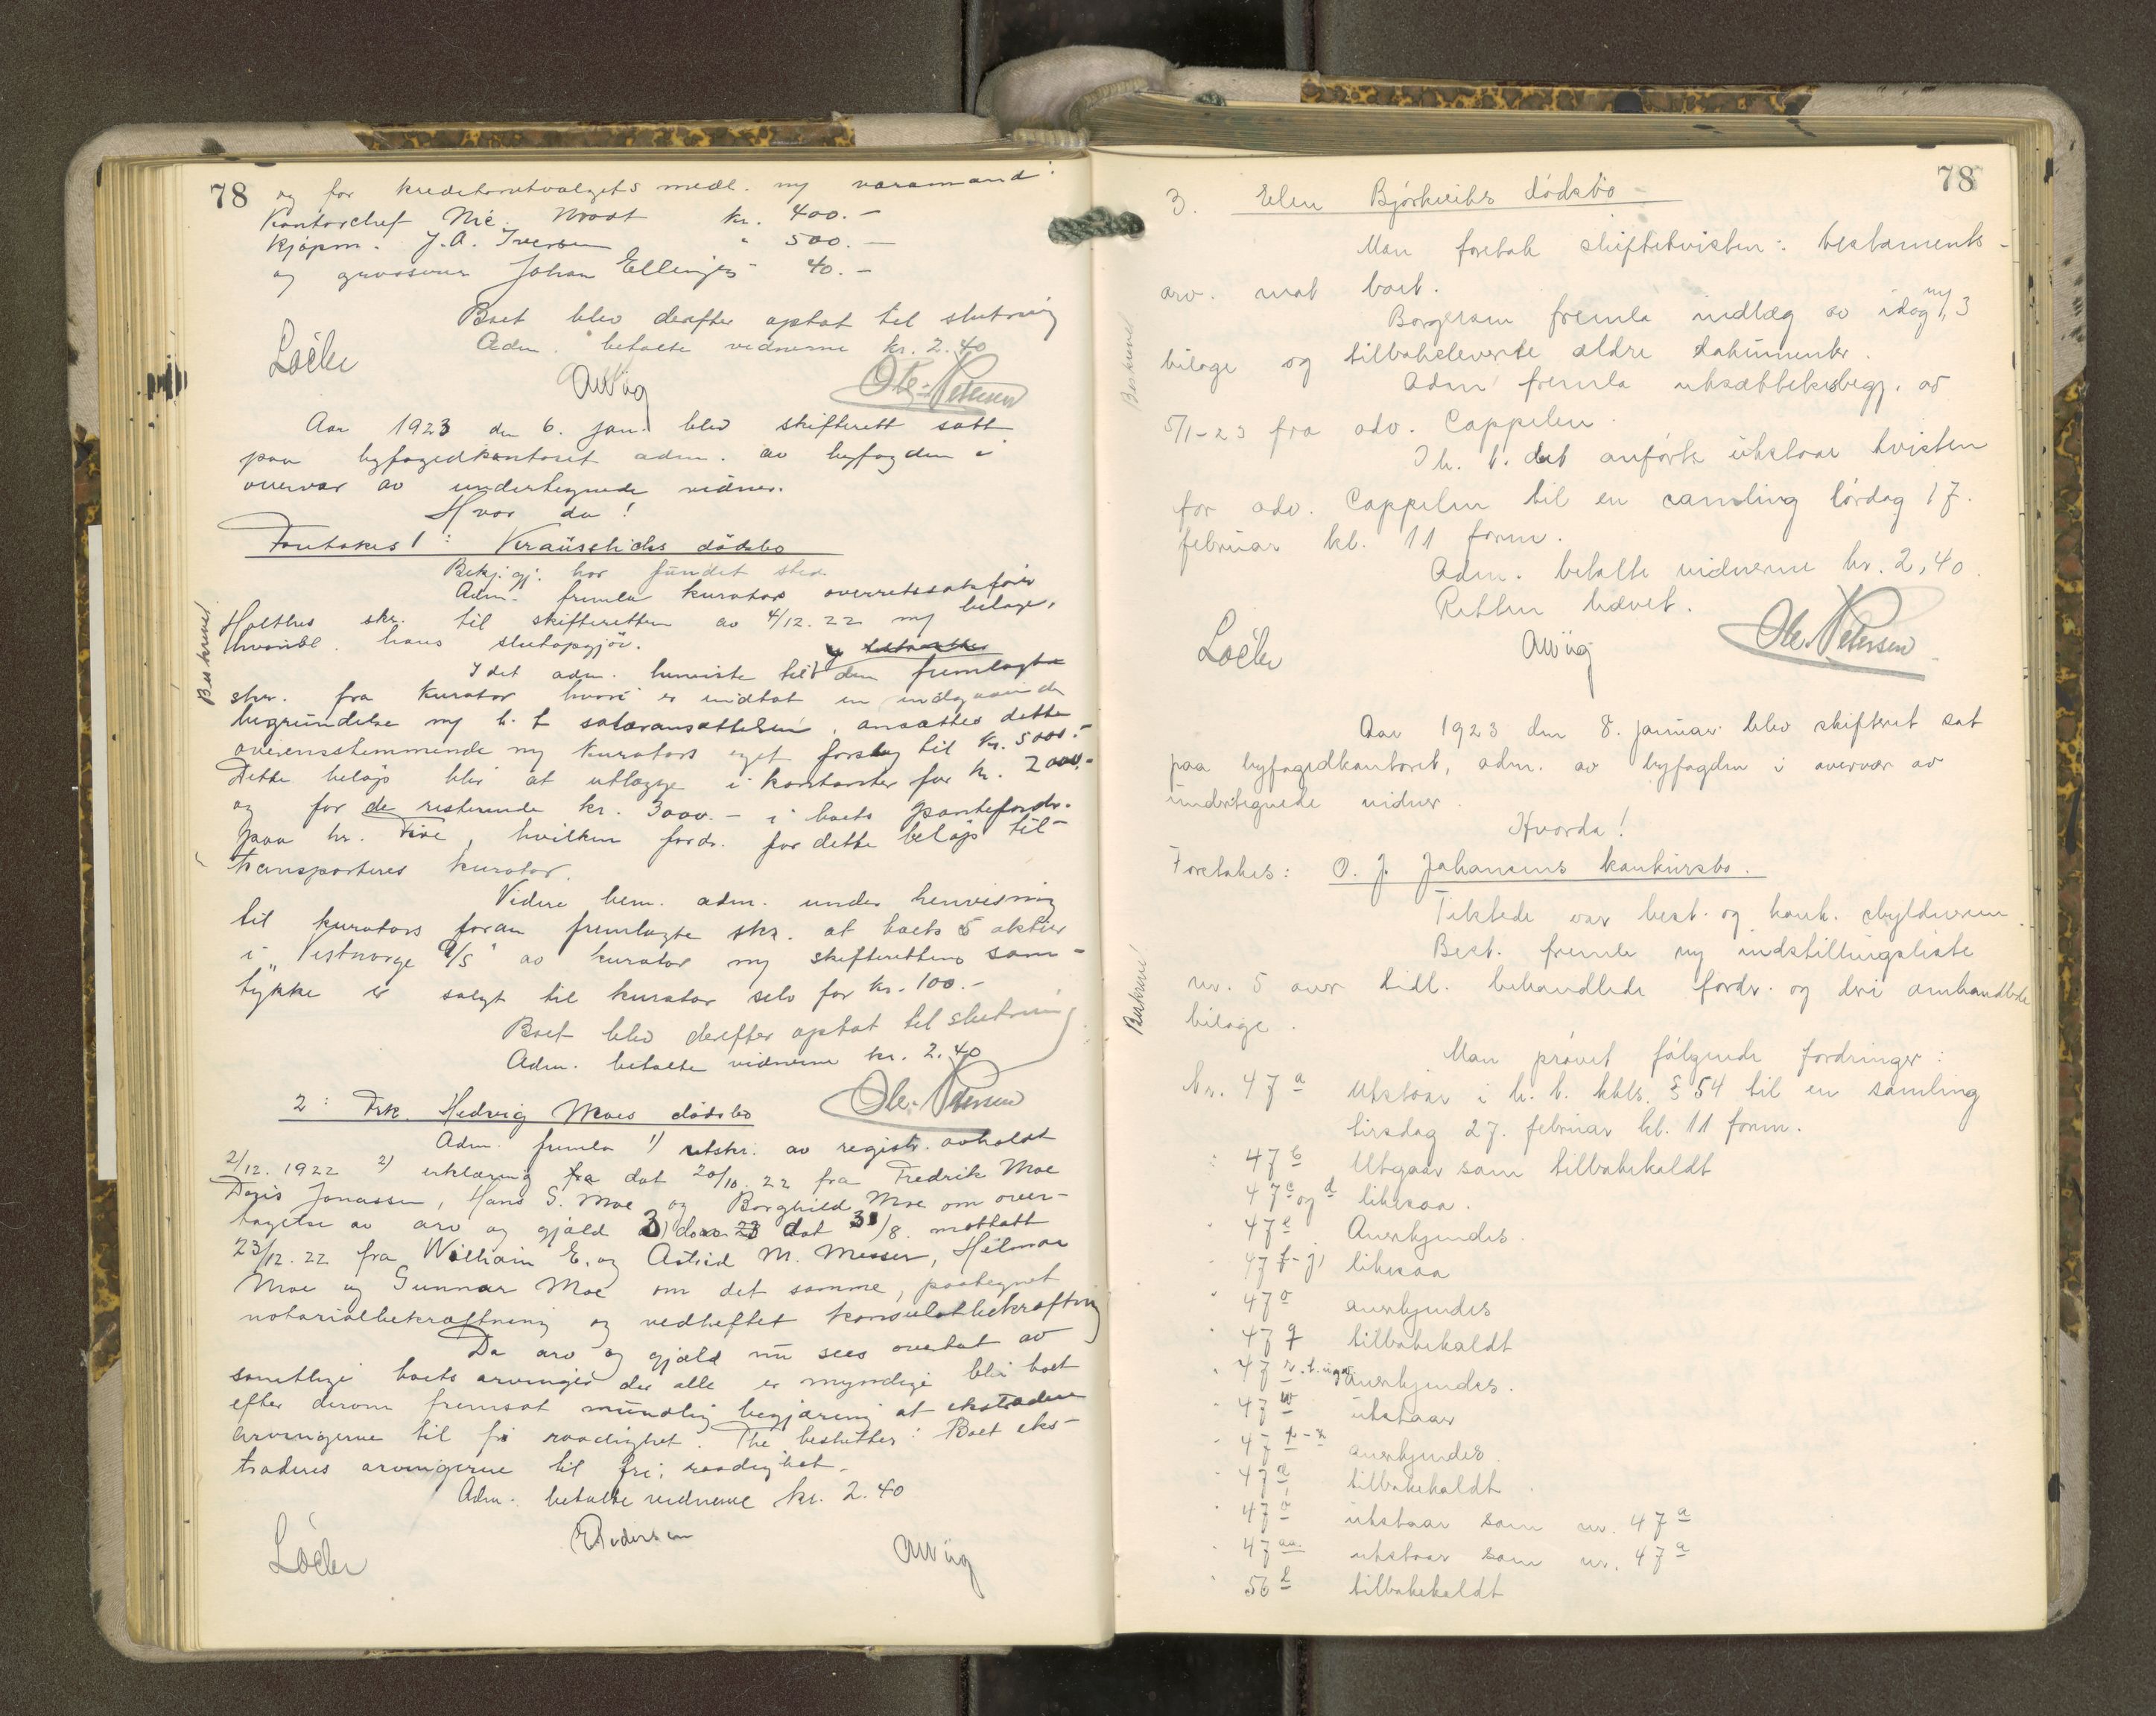 78
og for kreditorutvalgets medl. my varamand:
Kontorchef Nic. kr. 400.-
Kjøpm. J.A. Iversen " 500.-
og grosserer Johan Ellinger 40.-
Boet blev derefter optat til slutning
Adm. betalte vidnerne kr. 2.40
AWiig Ole Petersen
Aar 1923 den 6. jan. blev skifterett satt
paa byfogedkontoret adm. av byfogden i
overvær av undertegnede vidner.
Hvor da!
Foretakes 1: dødsbo
Bekj.gj. har fundet sted.
Adm. fremla kurators overretssakfører
Holthes skr. til skifteretten av 4/12.22 my bilage,
hvoribl. hans slutopgjør.
Beskrevet
Idet adm. henviste til den fremlagte
skr. fra kurator hvori er indtat en indgaaende
begrundelse my h.t. salæransættelsen, ansættes dette
overensstemmende my kurators eget forslag til kr. 5000.-
Dette beløp blir at utlægge i kontanter for kr. 2000.-
og for de resterende kr. 3000.- i boets pantefordr.
paa hr. , hvilken fordr. for dette beløp til-
transporteres kurator.
Videre bem. adm. under henvisning
til kurators foran fremlagte skr. at boets 5 aktier
i "Vestnorge A/S" av kurator my skifterettens sam-
tykke er solgt til kurator selv for kr. 100.-
Boet blev derefter optat til slutning
Adm. betalte vidnerne kr. 2.40
Ole Petersen
2: Frk. Hedvig Moes dødsbo
Adm. fremla 1) utskr. av registr. avholdt
2/12. 1922 2) erklæring fra dat 20/10.22 fra Fredrik Moe
Jonassen, Hans S. Moe og Borghild Moe om over-
tagelse av arv og gjæld 3) do. dat 31/8. mottatt
23/12.22 fra William E. og Astrid M. Messer, Hilmar
Moe og Gunnar Moe om det samme, paategnet
notarialbekræftning og vedheftet konsulatbekræftning
Da arv og gjæld nu sees overtat av
samtlige boets arvinger der alle er myndige blir boet
efter derom fremsat mundtlig begjæring at ekstradere
arvingerne til fri raadighet. The besluttes: Boet eks-
traderes arvingerne til fri raadighet.
Adm. betalte vidnerne kr. 2.40
EPedersen AWiig
78
3. Elen dødsbo
Man foretok skiftetvisten: testaments-
arv. mot boet.
Beskrevet
Borgersen fremla indlæg av idag my 3
bilage og tilbakeleverte ældre dokumenter.
Adm fremla utsættelsesbegj. av
5/1-23 fra adv. Cappelen.
I h. t. det anførte utstaar tvisten
for adv. Cappelen til en samling lørdag 17.
februar kl. 11 form.
Adm. betalte vidnerne kr. 2,40.
Retten hævet.
AWiig Ole Petersen
Aar 1923 den 8. januar blev skifteret sat
paa byfogedkontoret, adm. av byfogden i overvær av
undertegnede vidner.
Hvorda!
Foretakes: O. J. Johansens konkursbo.
Tilstede var best. og konk. skyldneren.
Best. fremla ny indstillingsliste
nr. 5 over tidl. behandlede fordr. og deri omhandlede
bilage.
Beskrevet
Man prøvet følgende fordringer:
Nr. 47 a Utstaar i h. t. kkls. § 54 til en samling
tirsdag 27. februar kl. 11 form.
" 47 b Utgaar som tilbakekaldt
47 c og d likesaa.
" 47 e Anerkjendes.
47 f-j likesaa
" 47 o anerkjendes
" 47 q tilbakekaldt
" 47 r. anerkjendes.
" 47 w utstaar
" 47 anerkjendes.
" 47 tilbakekaldt.
" 47 utstaar som nr. 47 a
" 47 aa. utstaar som nr. 47 a
" 56 tilbakekaldt